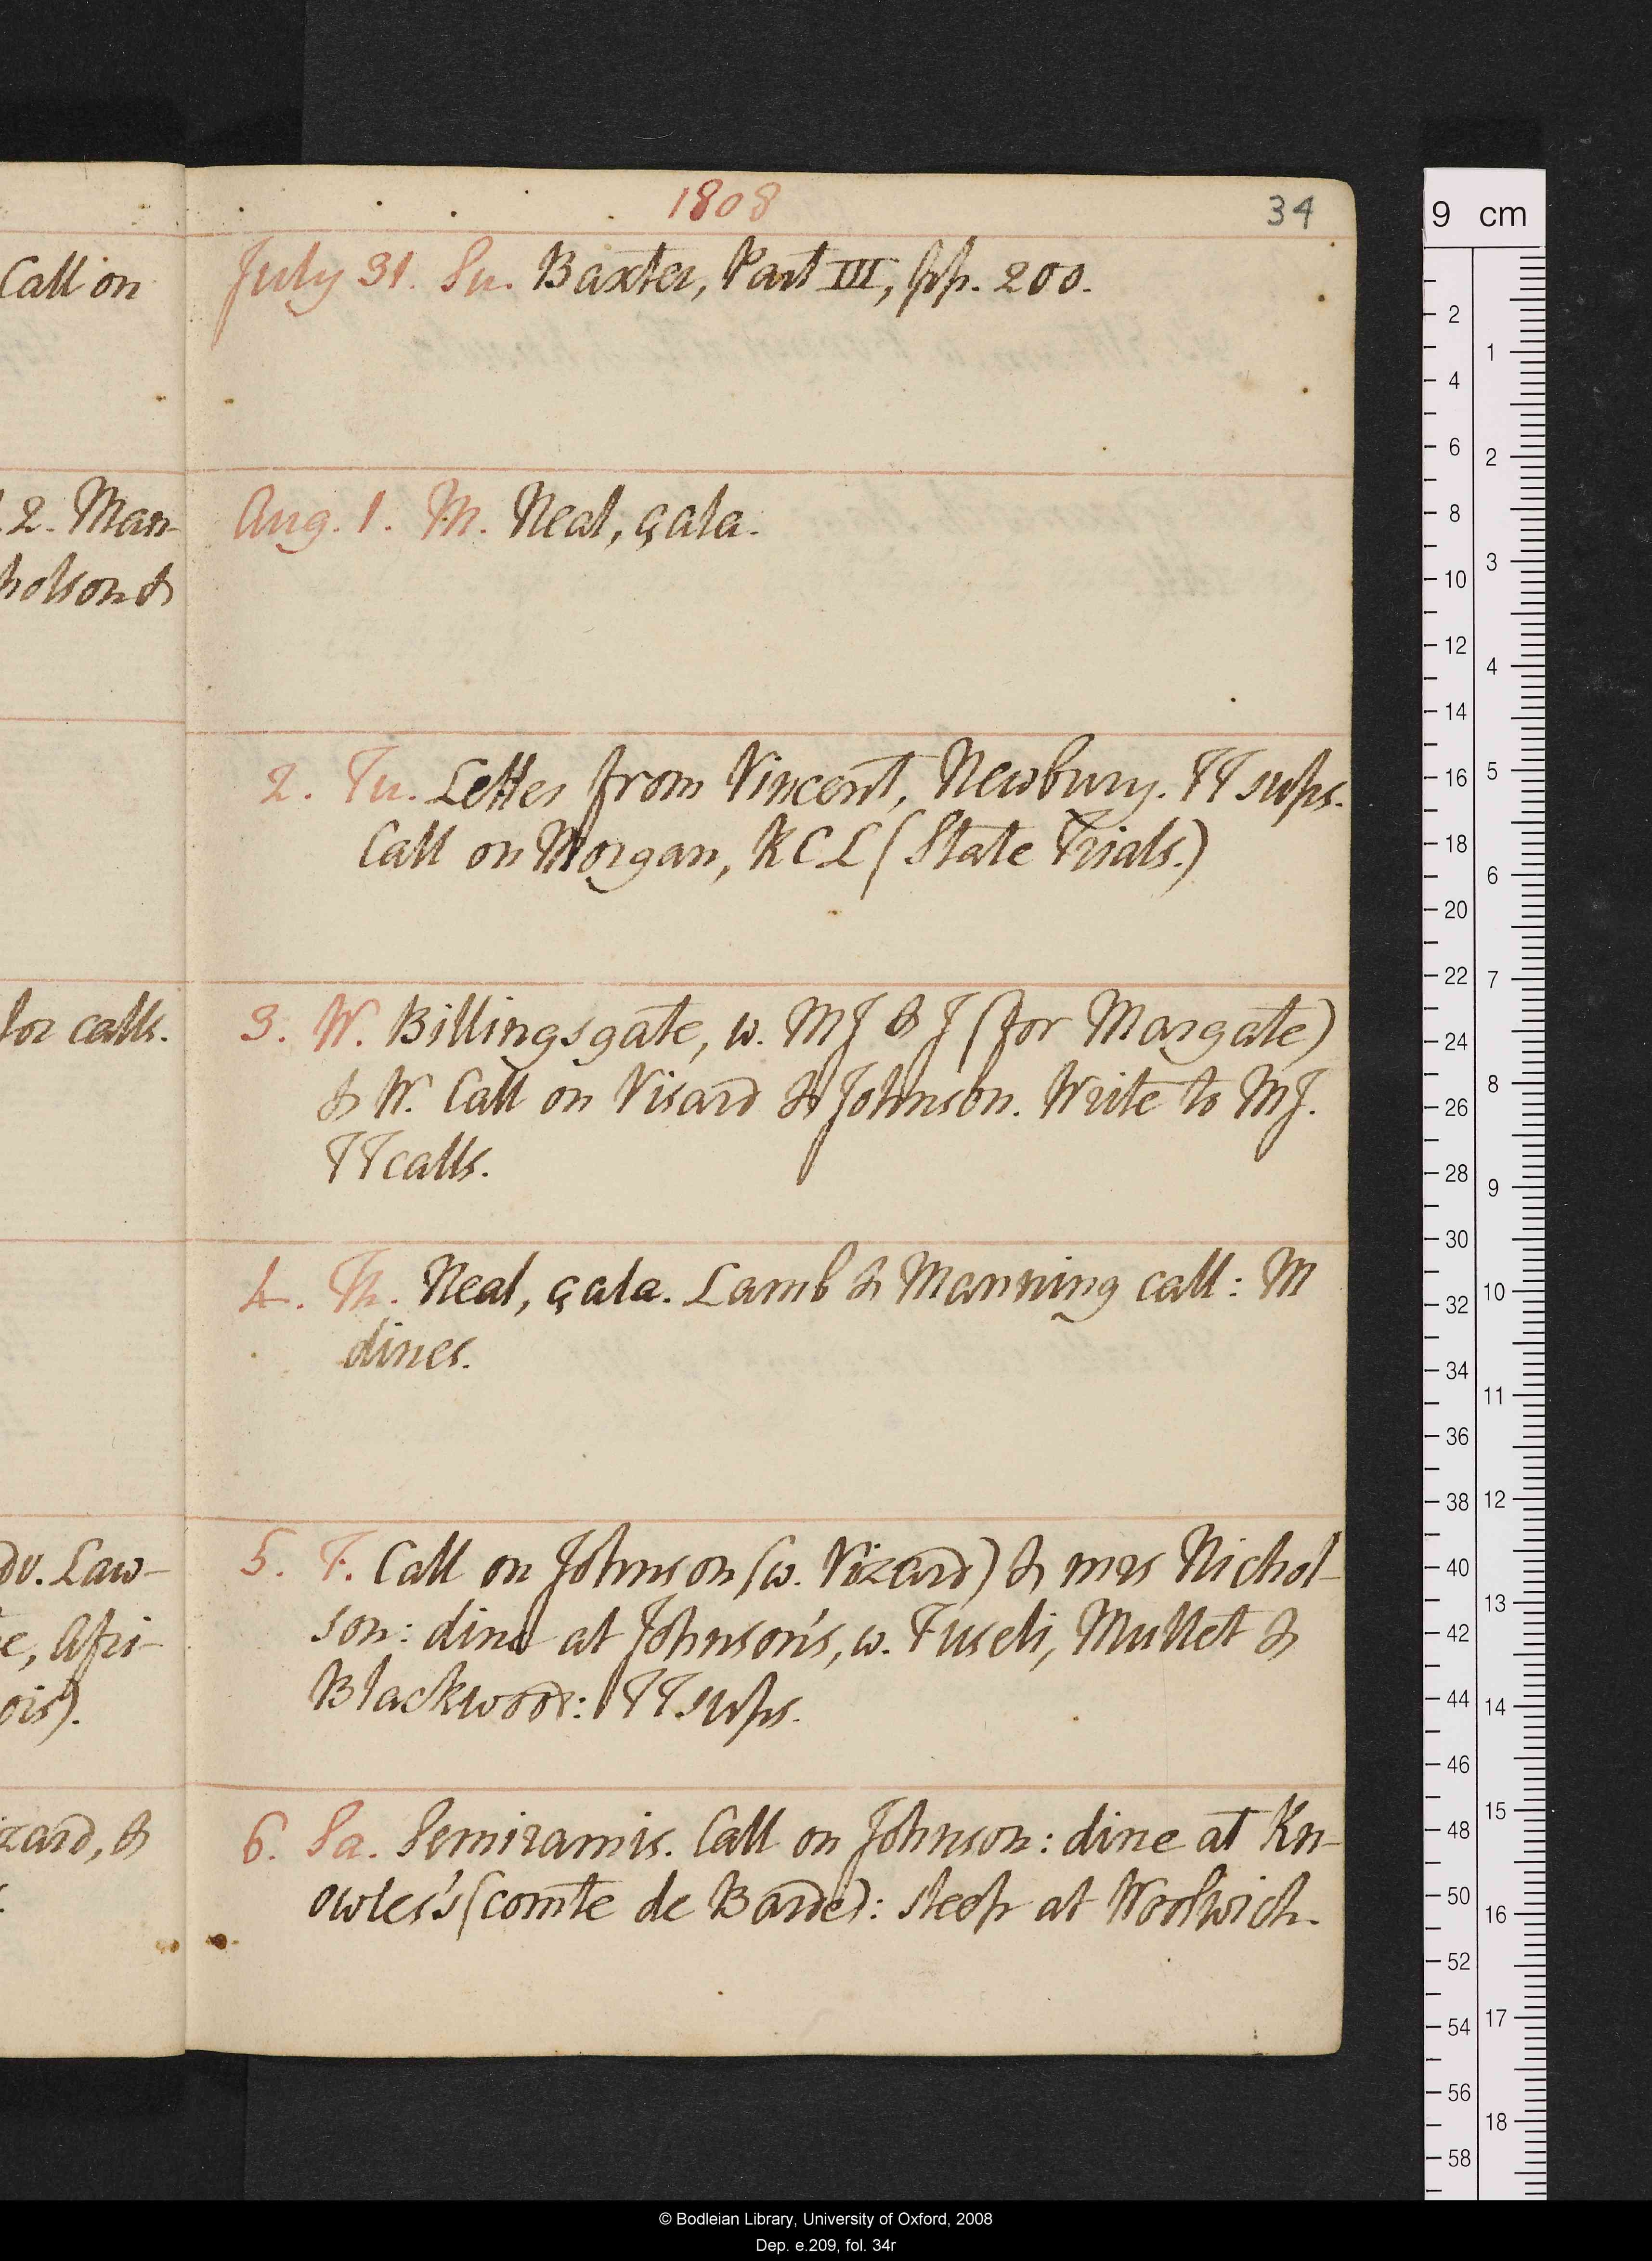 1808
34
July 31. Su. Baxter, Part III, pp. 200.
Aug. 1. M. Neal, çala.
2. Tu. Letter from Vincent, Newbury. TT sups.
Call on Morgan, KCL (State Trials.)
3. W. Billingsgate, w. MJ & J (for Margate)
& W. Call on Visard & Johnson. Write to MJ.
TT calls.
4. Th. Neal, çala. Lamb & Manning call: M
dines.
5. F. Call on Johnson (w. Vizard) & mrs Nichol-
son: dine at Johnson's, w. Fuseli, Mullet &
Blackwood: TT sups.
6. Sa. Semiramis. Call on Johnson: dine at Kn-
owles's (comte de Barde): sleep at Woolwich.
Call on
2. Man-
holson &
for calls.
dv. Law-
e, Afri-
ois).
zard, &
9 cm
2
4
6
8
10
12
14
16
18
20
22
24
26
28
30
32
34
36
38
40
42
44
46
48
50
52
54
56
58
1
2
3
4
5
6
7
8
9
10
11
12
13
14
15
16
17
18
© Bodleian Library, University of Oxford, 2008
Dep. e.209, fol. 34r